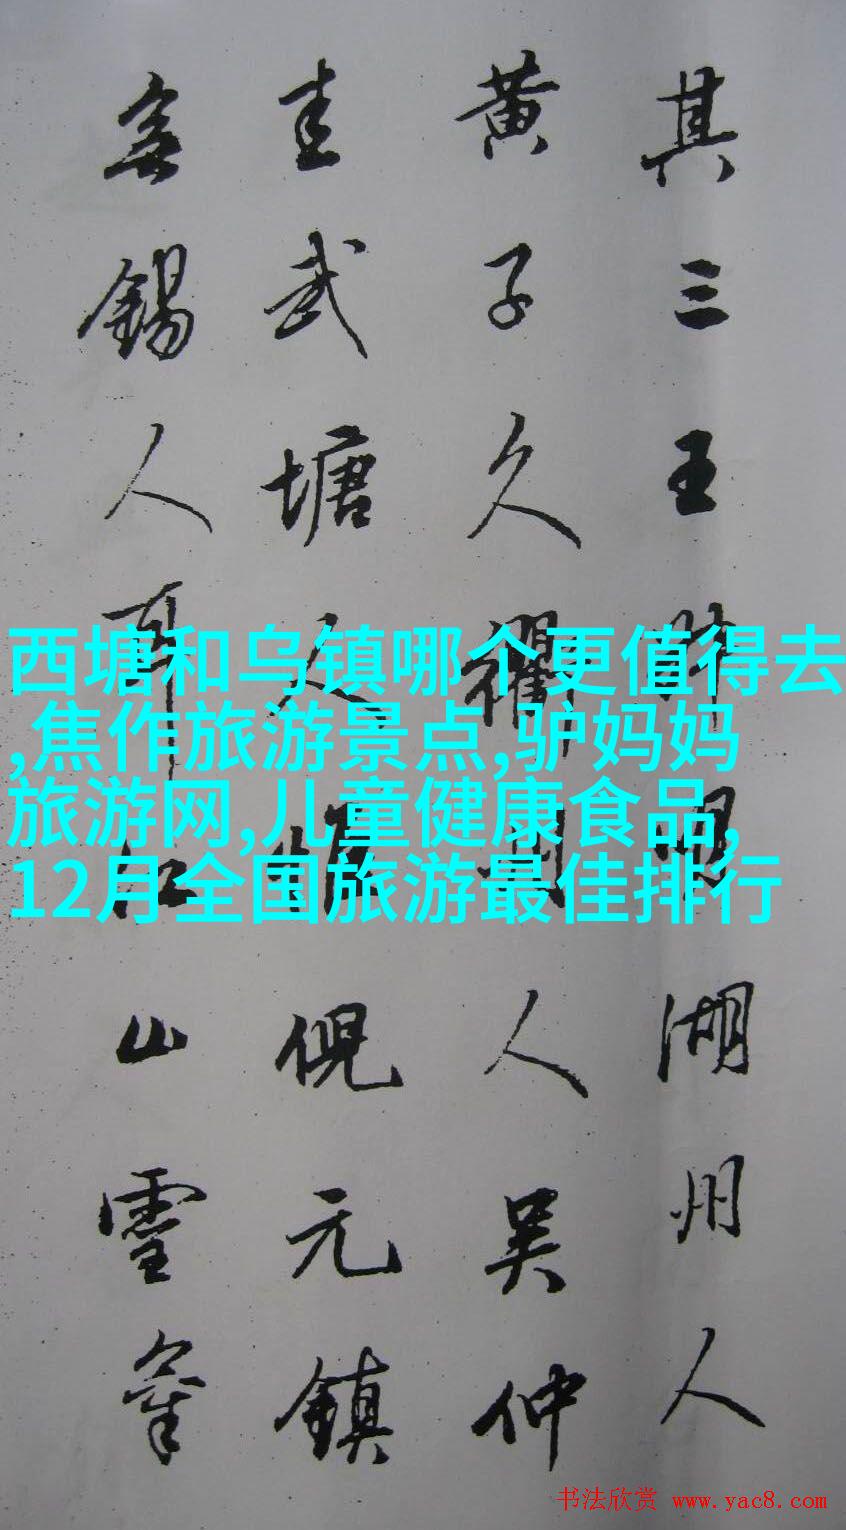 其三王叔明湖州人
黄子久衢州人吴仲
圭武塘人惟倪元鎮
無錫人耳江山霊氣
西塘和乌镇哪个更值得去
,焦作旅游景点,驴妈妈
旅游网,儿童健康食品,
12月全国旅游最佳排行
书法欣赏 www.yac8.com